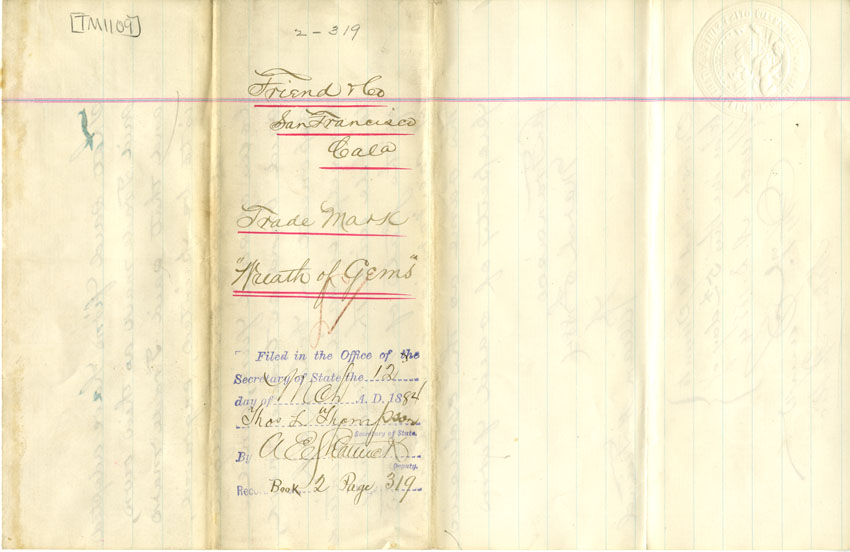 [TM1109]
2-319
Friend & Co
San Francisco
Cala
Trade Mark
"Wreath of Gems"
Filed in the Office of the
Secretary of State the 12
day of Mch A. D. 1884
Thos L. Thompson
Secretary of State.
By A E Shattuck
Deputy.
Record Book 2 Page 319